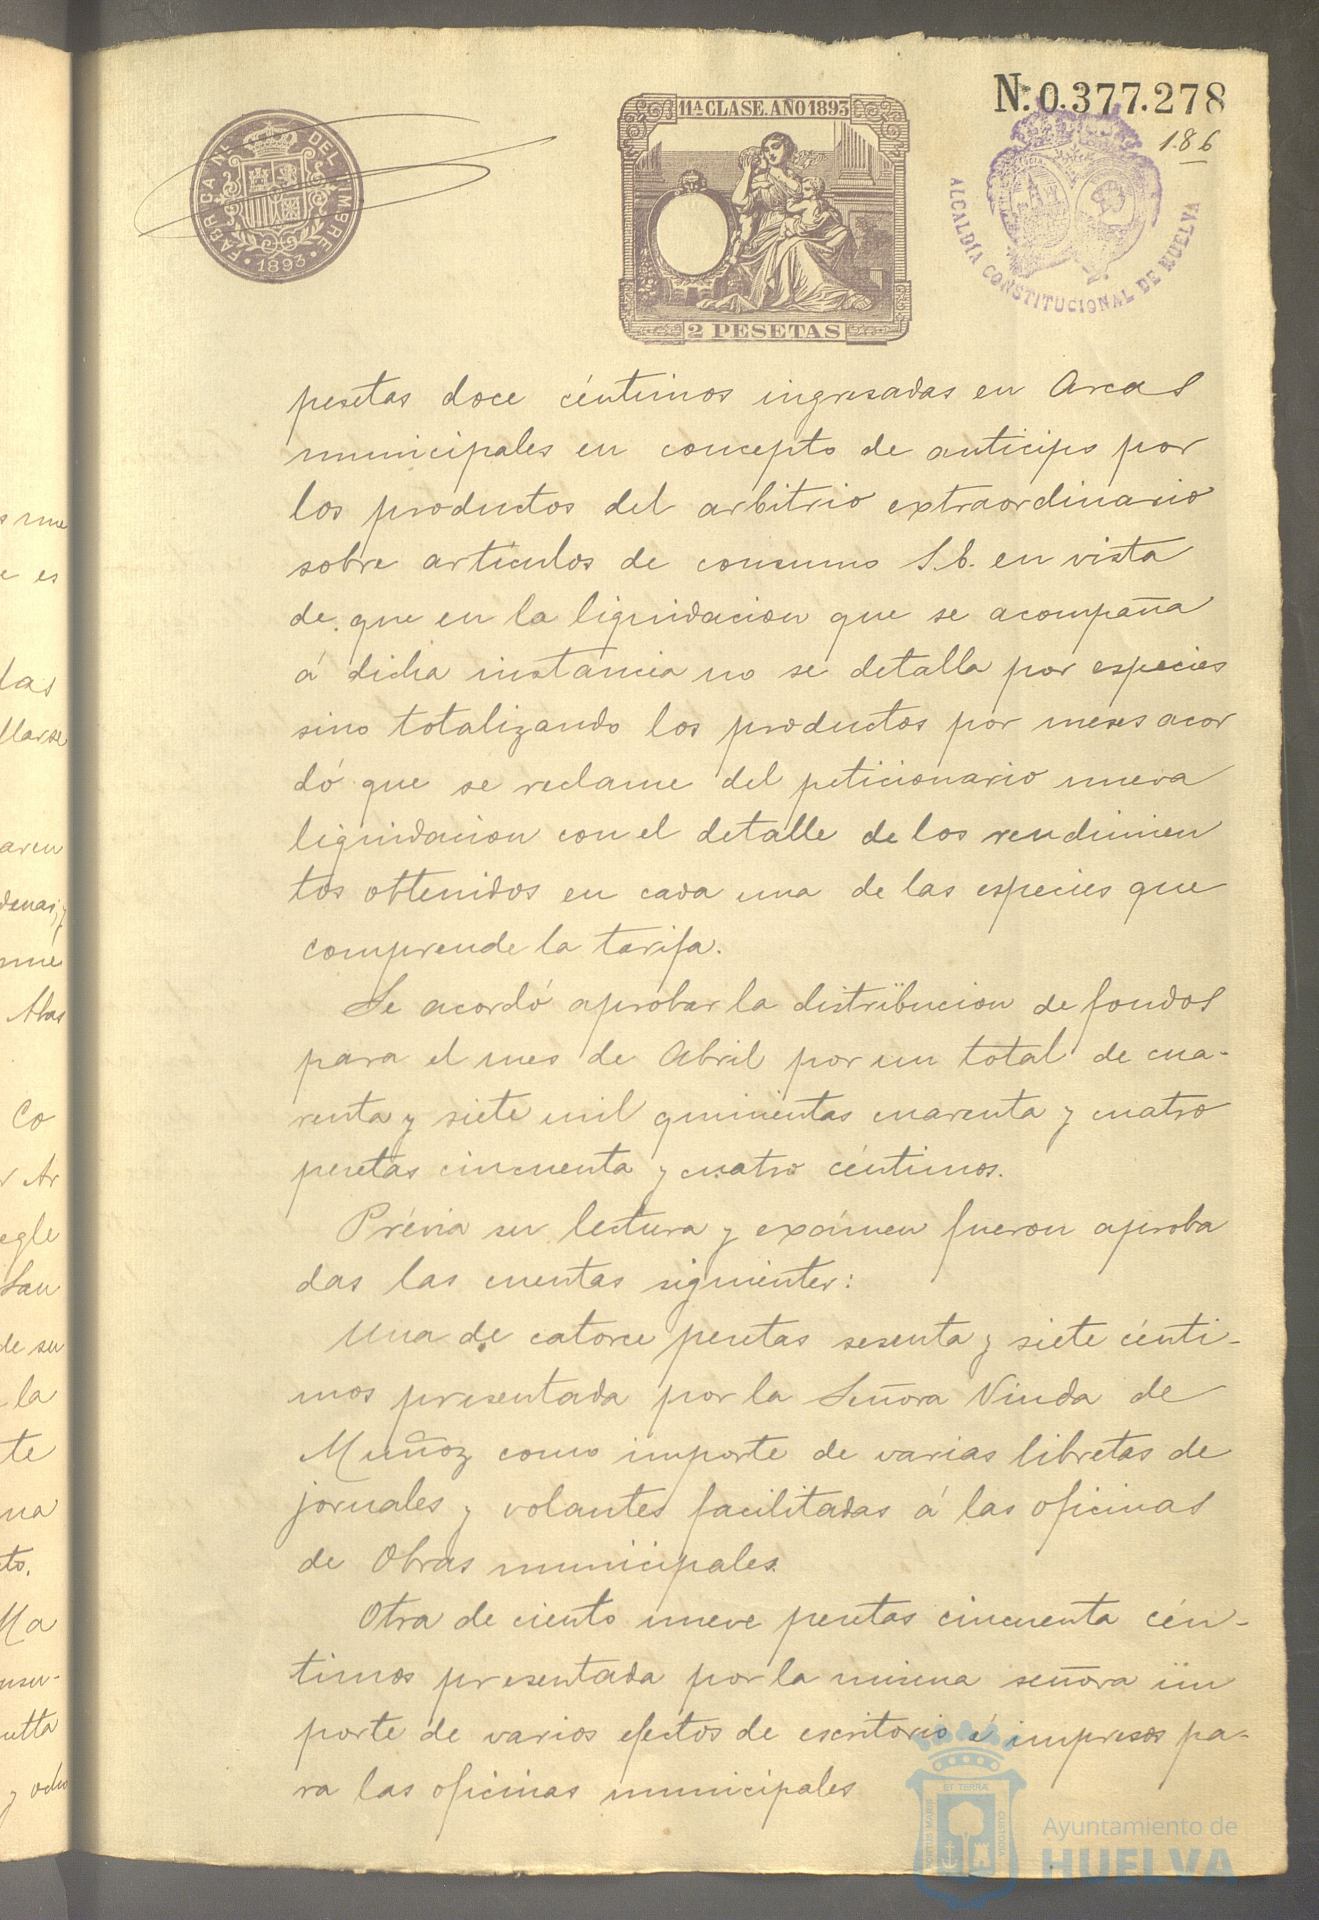 N.º 0.377.278
186
FABRICA NL. DEL TIMBRE
· 1893 ·
11ª CLASE. AÑO 1893
2 PESETAS
ALCALDÍA CONSTITUCIONAL DE HUELVA
pesetas doce céntimos ingresadas en Arcas
municipales en concepto de anticipo por
los productos del arbitrio extraordinario
sobre artículos de consumo S.E. en vista
de que en la liquidacion que se acompaña
á dicha instancia no se detalla por especies
sino totalizando los productos por meses acor
dó que se reclame del peticionario nueva
liquidacion con el detalle de los rendimien
tos obtenidos en cada una de las especies que
comprende la tarifa.
Se acordó aprobar la distribucion de fondos
para el mes de Abril por un total de cua-
renta y siete mil quinientas cuarenta y cuatro
pesetas cincuenta y cuatro céntimos.
Prévia su lectura y exámen fueron aproba
das las cuentas siguientes:
Una de catorce pesetas sesenta y siete cénti-
mos presentada por la Señora Viuda de
Muñoz como importe de varias libretas de
jornales y volantes facilitadas á las oficinas
de Obras municipales.
Otra de ciento nueve pesetas cincuenta cén-
timos presentada por la misma señora im
porte de varios efectos de escritorio é impresos pa-
ra las oficinas municipales
PORTUS MARIS ET TERRAE CUSTODIA
Ayuntamiento de
HUELVA